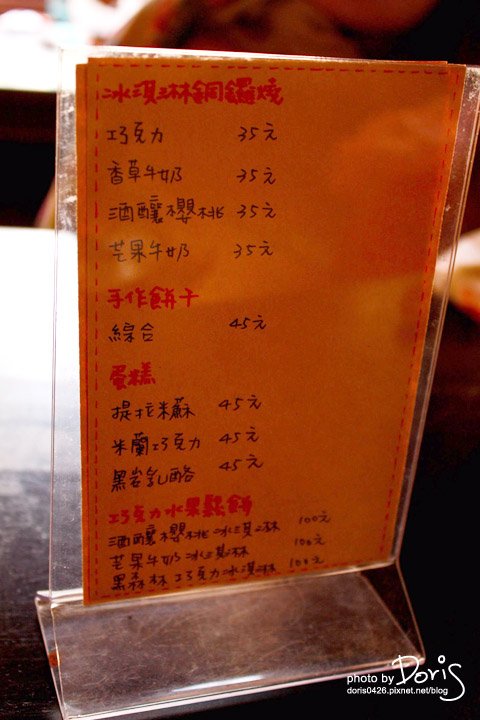 冰淇淋銅鑼燒
巧克力 35元
香草牛奶 35元
酒釀櫻桃 35元
芒果牛奶 35元
手作餅干
綜合 45元
蛋糕
提拉米蘇 45元
米蘭巧克力 45元
黑岩乳酪 45元
巧克力水果鬆餅
酒釀櫻桃冰淇淋 100元
芒果牛奶冰淇淋 100元
黑森林巧克力冰淇淋 100元
photo by Doris
doris0426.pixnet.net/blog